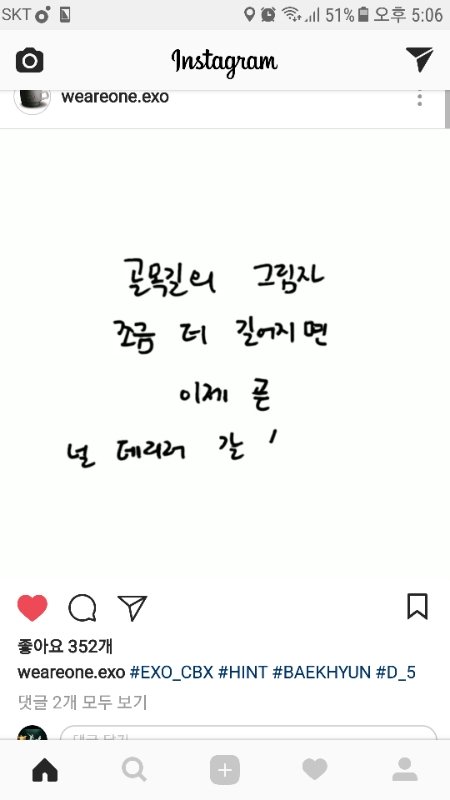 SKT 51% 오후 5:06
Instagram
weareone.exo
골목길의 그림자
조금 더 길어지면
이제 곧
널 데리러 갈
좋아요 352개
weareone.exo #EXO_CBX #HINT #BAEKHYUN #D_5
댓글 2개 모두 보기
댓글 달기